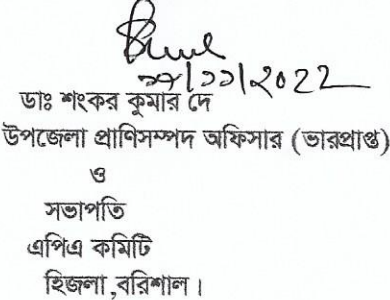 /১১/২০২২
ডাঃ শংকর কুমার দে
উপজেলা প্রাণিসম্পদ অফিসার (ভারপ্রাপ্ত)
ও
সভাপতি
এপিএ কমিটি
হিজলা ,বরিশাল।